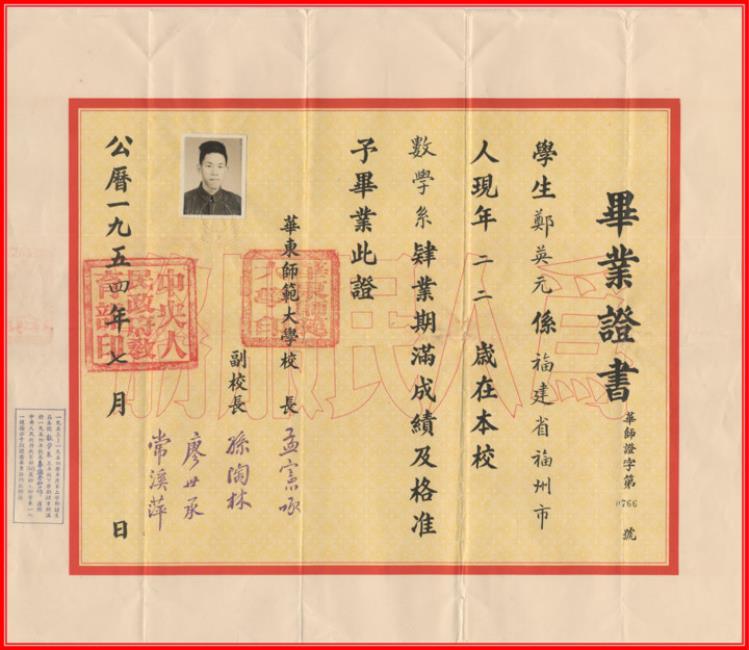 畢業證書
華師證字第0766號
學生鄭英元係福建省福州市
人現年二二歲在本校
數學系肄業期滿成績及格准
予畢業此證
華東師範大學校長 孟憲承
副校長 孫陶林
廖世承
常溪萍
公曆一九五四年七月 日
為人民服務
華東師範大學印
中央人民政府教育部印